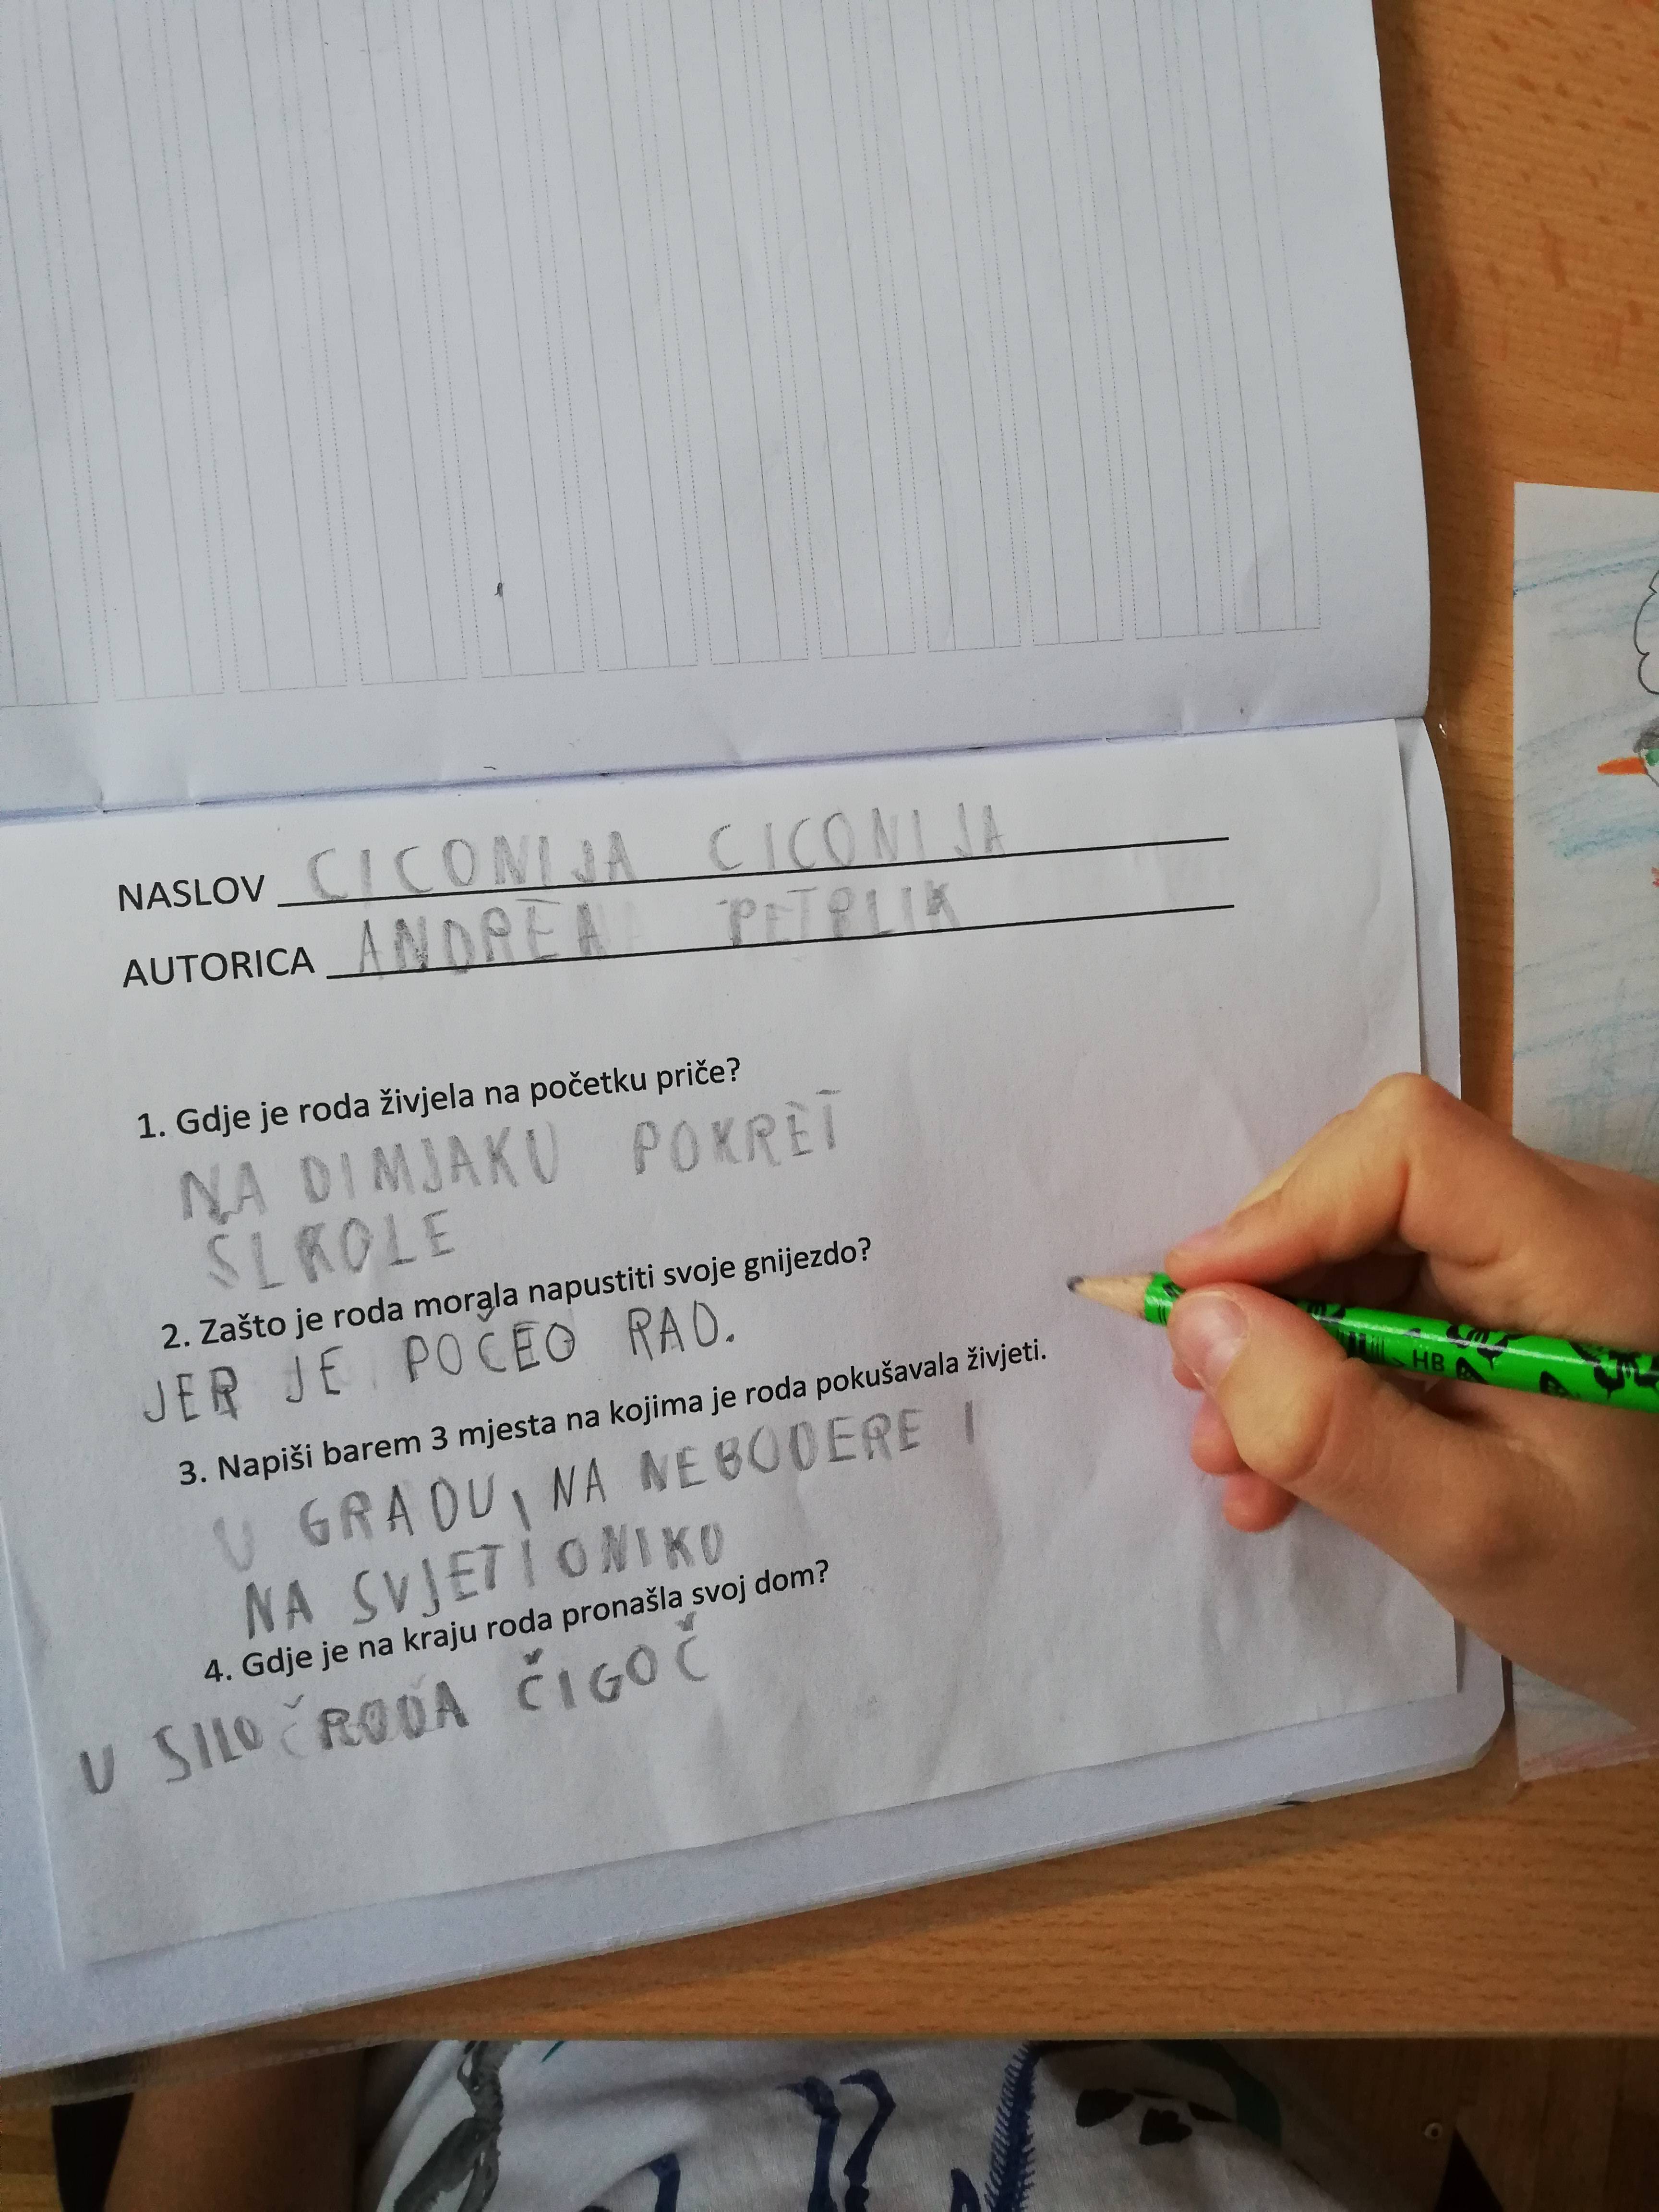 NASLOV CICONIJA CICONIJA
AUTORICA ANDREA PETRLIK
1. Gdje je roda živjela na početku priče?
NA DIMJAKU POKRET
ŠLKOLE
2. Zašto je roda morala napustiti svoje gnijezdo?
JER JE POČEO RAD.
3. Napiši barem 3 mjesta na kojima je roda pokušavala živjeti.
U GRADU, NA NEBODERE I
NA SVJETIONIKU
4. Gdje je na kraju roda pronašla svoj dom?
U SILO RODA ČIGOČ
HB